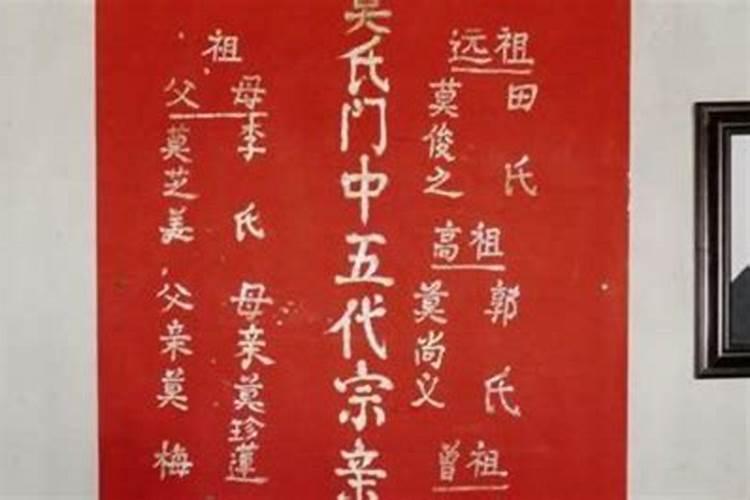 远祖
田氏
莫俊之
高祖
郭氏
莫尚义
曾祖
莫氏门中五代宗亲
祖
母李氏
父莫芝美
母亲莫珍蓮
父亲莫梅